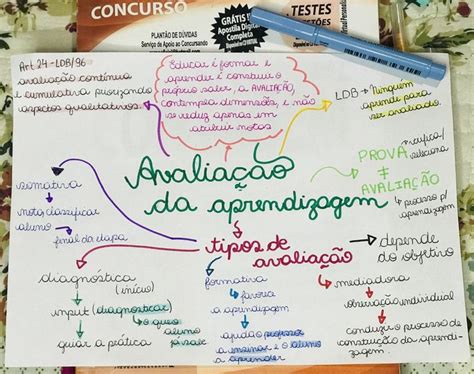 CONCURSO
PLANTÃO DE DÚVIDAS
Serviço de Apoio ao Concursando
GRÁTIS!
Apostila Digital
Completa
TESTES
Art. 24 - LDB/96
avaliação contínua
e cumulativa priorizando
aspectos qualitativos.
Educar é formar e
aprender é construir o
próprio saber, a AVALIAÇÃO,
contempla dimensões, e não
se reduz apenas em
atribuir notas
LDB → Ninguém
aprende para
ser avaliado.
Avaliação
da aprendizagem
PROVA
≠
AVALIAÇÃO
verifica/
seleciona
processo p/
aprendizagem
somativa
nota, classificar
aluno
final da etapa
tipos de
avaliação
depende
do objetivo
diagnóstica
(início)
input (diagnosticar)
o que o
aluno
já sabe
guiar a prática
formativa
favorece
a aprendizagem
ajuda o professor
a ensinar e o aluno
a aprender
mediadora
observação individual
conduzir o processo de
construção da aprendi-
zagem.